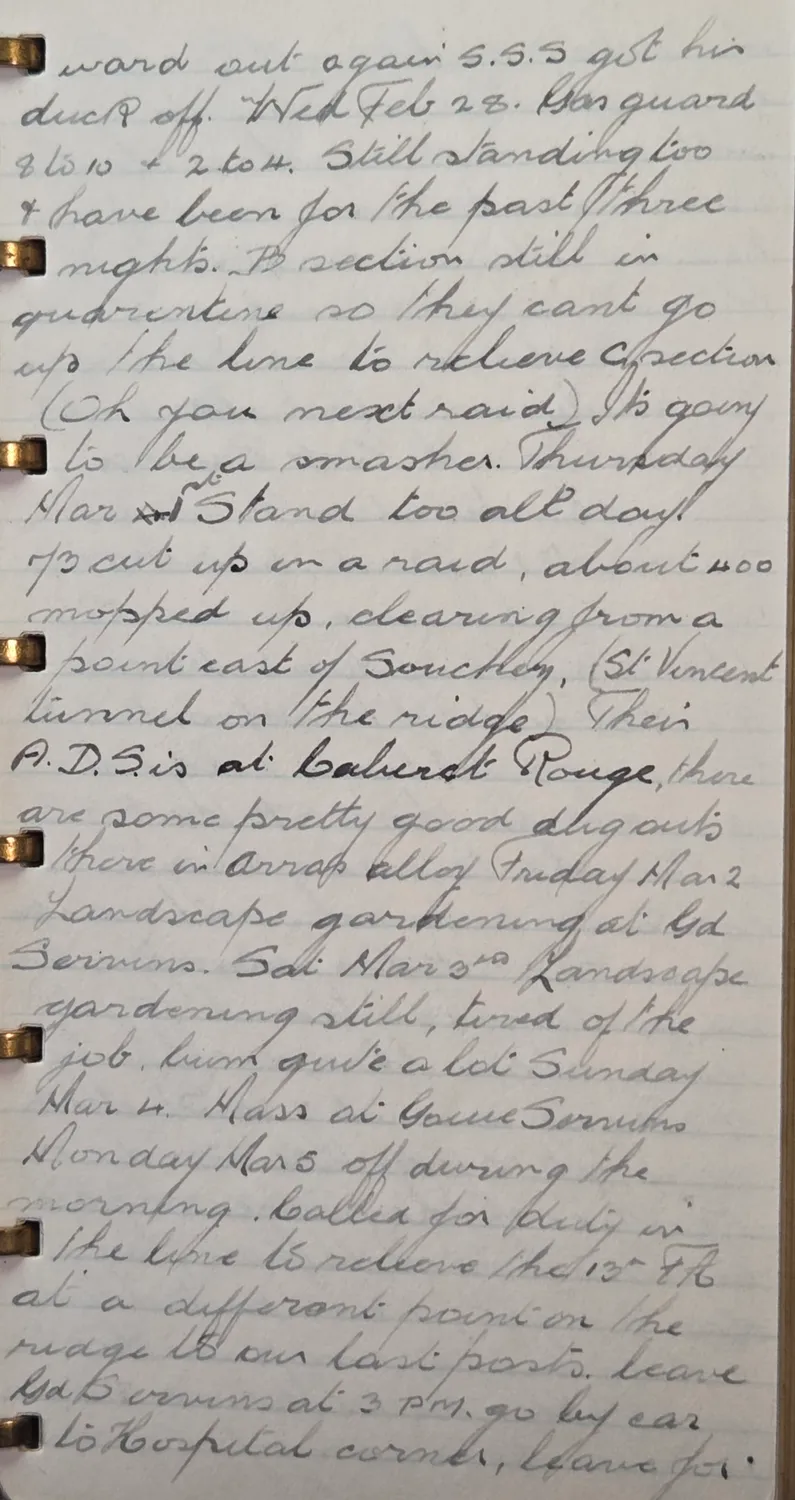 ward out again S.S.S got his
duck off. Wed Feb 28. Gas guard
8 to 10 + 2 to 4. Still standing too
+ have been for the past three
nights. B section still in
quarentine so they cant go
up the line to relieve C section
(Oh you next raid) Its going
to be a smasher. Thursday
Mar 1st Stand too all day.
73 cut up in a raid, about 400
mopped up, clearing from a
point east of Souchey, (St Vincent
tunnel on the ridge) Their
A.D.S. is at Caberet Rouge, there
are some pretty good dug outs
there in Arras alley Friday Mar 2
Landscape gardening at Gd
Servins. Sat Mar 3rd Landscape
gardening still, tired of the
job. bum quite a lot Sunday
Mar 4. Mass at Servins
Monday Mar 5 off during the
morning. Called for duty in
the line to relieve the 13th FA
at a different point on the
ridge to our last posts. leave
Gd Servins at 3 PM. go by car
to Hospital corner, leave for